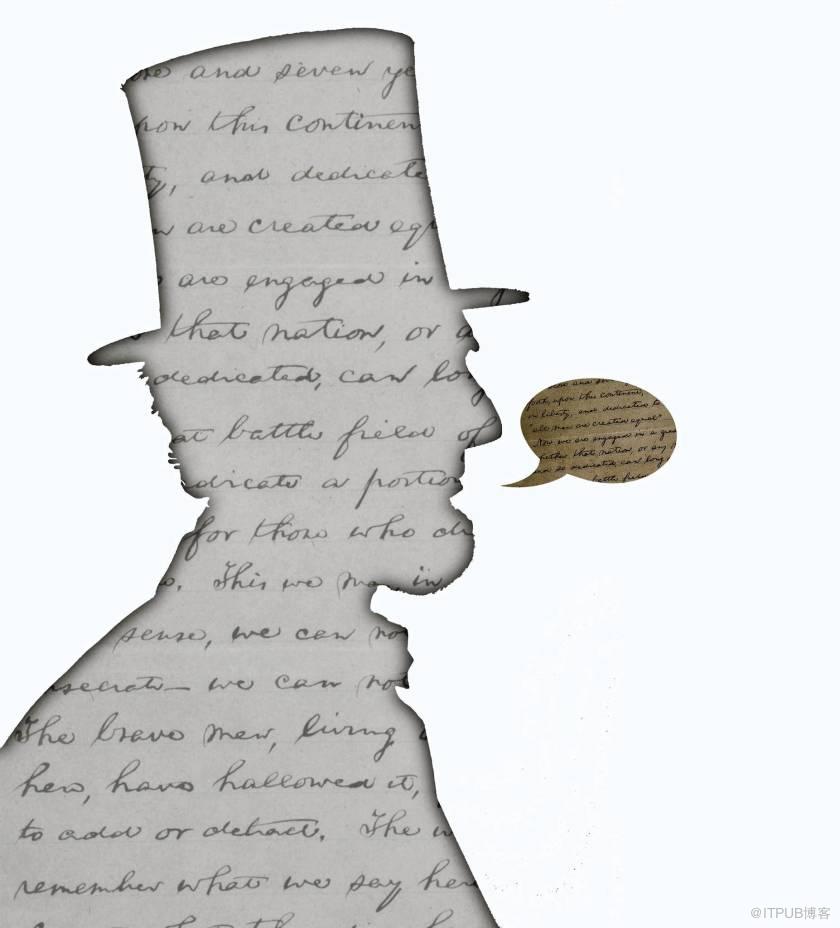 and seven ye
pon this continen
ty, and dedicate
are created eq
are engaged in
that nation, or a
dedicated, can lon
at battle field of
dicate a portion
for those who di
This we may, in
sense, we can no
nsecrate— we can no
The brave men, living
here, have hallowed it,
to add or detract. The w
remember what we say here
forth, upon this continent,
in liberty, and dedicated to
"all men are created equal"
Now we are engaged in a gre
hether that nation, or any
and so dedicated, can long
battle field
@ITPUB博客